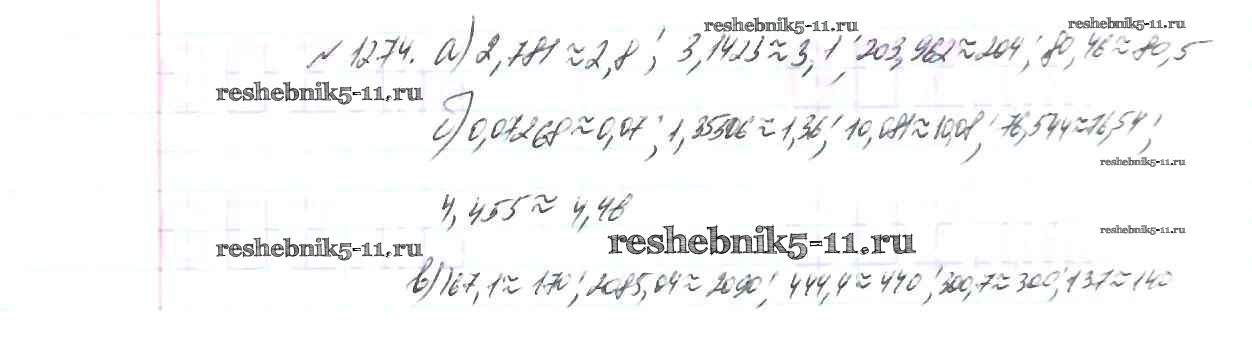 reshebnik5-11.ru reshebnik5-11.ru
№ 1274. а) 2,781 ≈ 2,8; 3,1423 ≈ 3,1; 203,962 ≈ 204; 80,46 ≈ 80,5
reshebnik5-11.ru
б) 0,07268 ≈ 0,07; ≈ 1,36; 10,081 ≈ 10,08; 76,544 ≈ 76,54;
reshebnik5-11.ru
4,455 ≈ 4,46
reshebnik5-11.ru reshebnik5-11.ru reshebnik5-11.ru
в) 167,1 ≈ 170; 2085,04 ≈ 2090; 444,4 ≈ 440; 300,7 ≈ 300; 137 ≈ 140